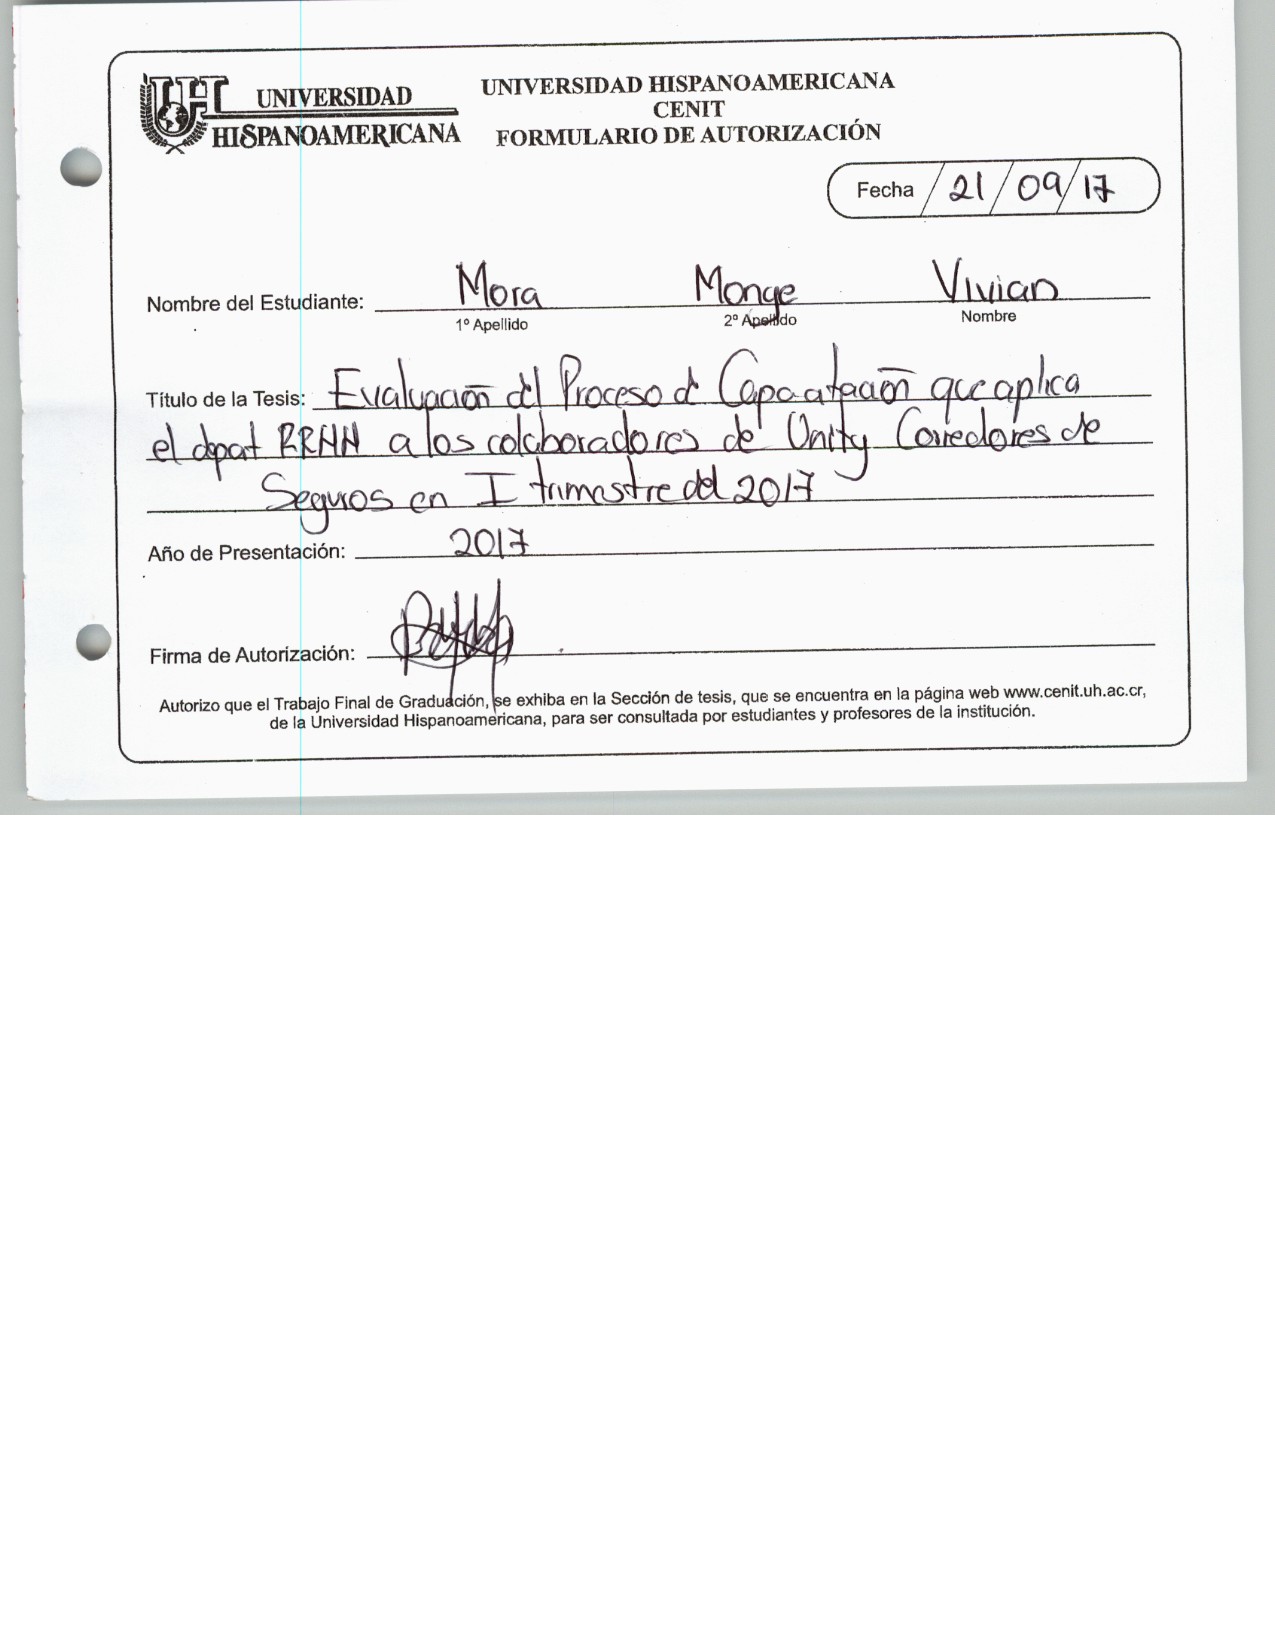 UNIVERSIDAD
HISPANOAMERICANA
UNIVERSIDAD HISPANOAMERICANA
CENIT
FORMULARIO DE AUTORIZACIÓN
Fecha / 21 / 09 / 17
Nombre del Estudiante: Mora Monge Vivian
1º Apellido 2º Apellido Nombre
Título de la Tesis: Evaluación del Proceso d Capacitación que aplica
el depat RRHH a los colaboradores de Unity Corredores de
Seguros en I trimestre del 2017
Año de Presentación: 2017
Firma de Autorización:
Autorizo que el Trabajo Final de Graduación, se exhiba en la Sección de tesis, que se encuentra en la página web www.cenit.uh.ac.cr,
de la Universidad Hispanoamericana, para ser consultada por estudiantes y profesores de la institución.